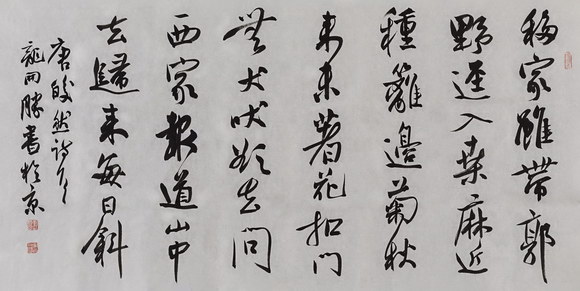 移家雖帶郭
野逕入桑麻近
種籬邊菊秋
來未著花扣門
無犬吠欲去問
西家報道山中
去歸來每日斜
唐皎然詩
龍開勝書於京